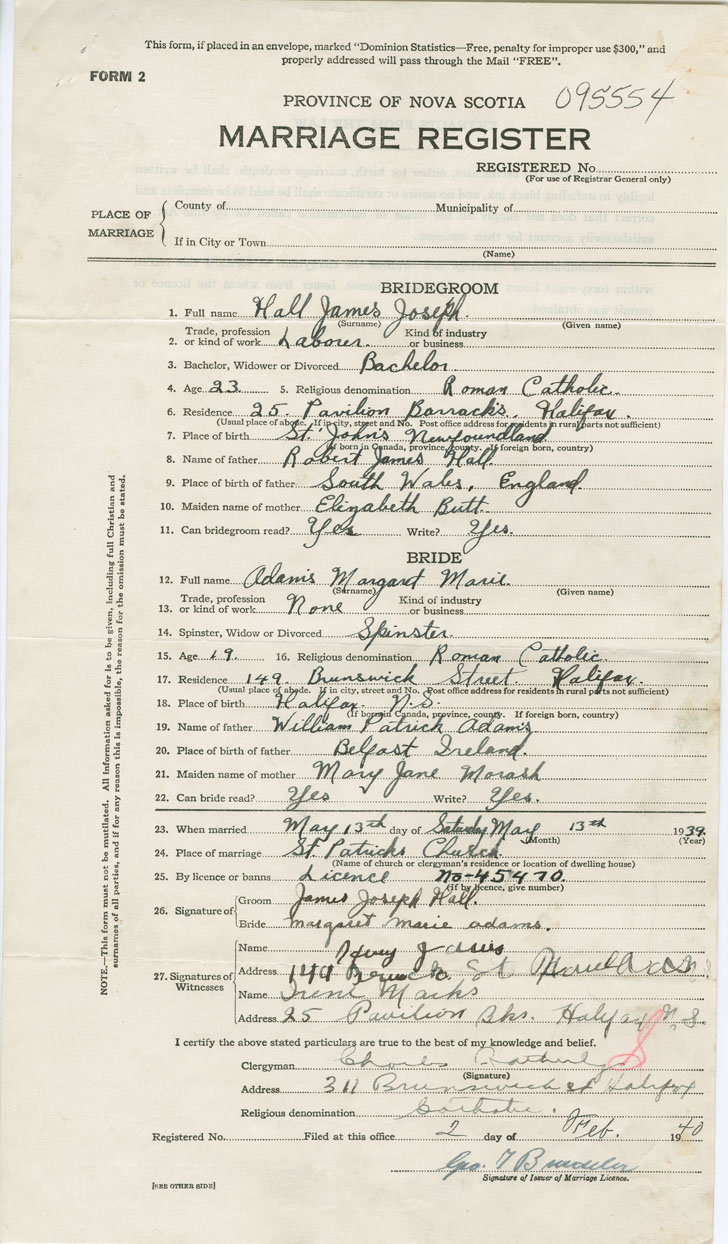 This form, if placed in an envelope, marked "Dominion Statistics—Free, penalty for improper use $300," and
properly addressed will pass through the Mail "FREE".
FORM 2
PROVINCE OF NOVA SCOTIA 095554
MARRIAGE REGISTER
REGISTERED No
(For use of Registrar General only)
PLACE OF MARRIAGE
County of Municipality of
If in City or Town
(Name)
BRIDEGROOM
1. Full name Hall James Joseph.
(Surname) (Given name)
2. Trade, profession or kind of work Laborer. Kind of industry or business
3. Bachelor, Widower or Divorced Bachelor
4. Age 23 5. Religious denomination Roman Catholic.
6. Residence 25. Pavilion Barracks, Halifax.
(Usual place of abode. If in city, street and No. Post office address for residents in rural parts not sufficient)
7. Place of birth St. John's Newfoundland
(If born in Canada, province, county. If foreign born, country)
8. Name of father Robert James Hall.
9. Place of birth of father South Wales, England.
10. Maiden name of mother Elizabeth Butt.
11. Can bridegroom read? Yes Write? Yes.
BRIDE
12. Full name Adams Margaret Marie.
(Surname) (Given name)
13. Trade, profession or kind of work None Kind of industry or business
14. Spinster, Widow or Divorced Spinster.
15. Age 19. 16. Religious denomination Roman Catholic.
17. Residence 149. Brunswick Street Halifax.
(Usual place of abode. If in city, street and No. Post office address for residents in rural parts not sufficient)
18. Place of birth Halifax. N.S.
(If born in Canada, province, county. If foreign born, country)
19. Name of father William Patrick Adams
20. Place of birth of father Belfast Ireland.
21. Maiden name of mother Mary Jane Morash
22. Can bride read? Yes Write? Yes.
23. When married May 13th day of Saturday May 13th 1939.
(Month) (Year)
24. Place of marriage St. Patricks Church.
(Name of church or clergyman's residence or location of dwelling house)
25. By licence or banns Licence No-45470.
(If by licence, give number)
26. Signature of
Groom James Joseph Hall.
Bride Margaret Marie Adams.
27. Signatures of Witnesses
Name
Address St
Name Irene Marks
Address 25 Pavilion Bks. Halifax N.S.
I certify the above stated particulars are true to the best of my knowledge and belief.
Clergyman Charles
(Signature)
Address 311 Brunswick st Halifax
Religious denomination Catholic.
Registered No. Filed at this office 2 day of Feb. 1940
Geo.
Signature of Issuer of Marriage Licence.
[SEE OTHER SIDE]
NOTE.—This form must not be mutilated. All information asked for is to be given, including full Christian and
surnames of all parties, and if for any reason this is impossible, the reason for the omission must be stated.